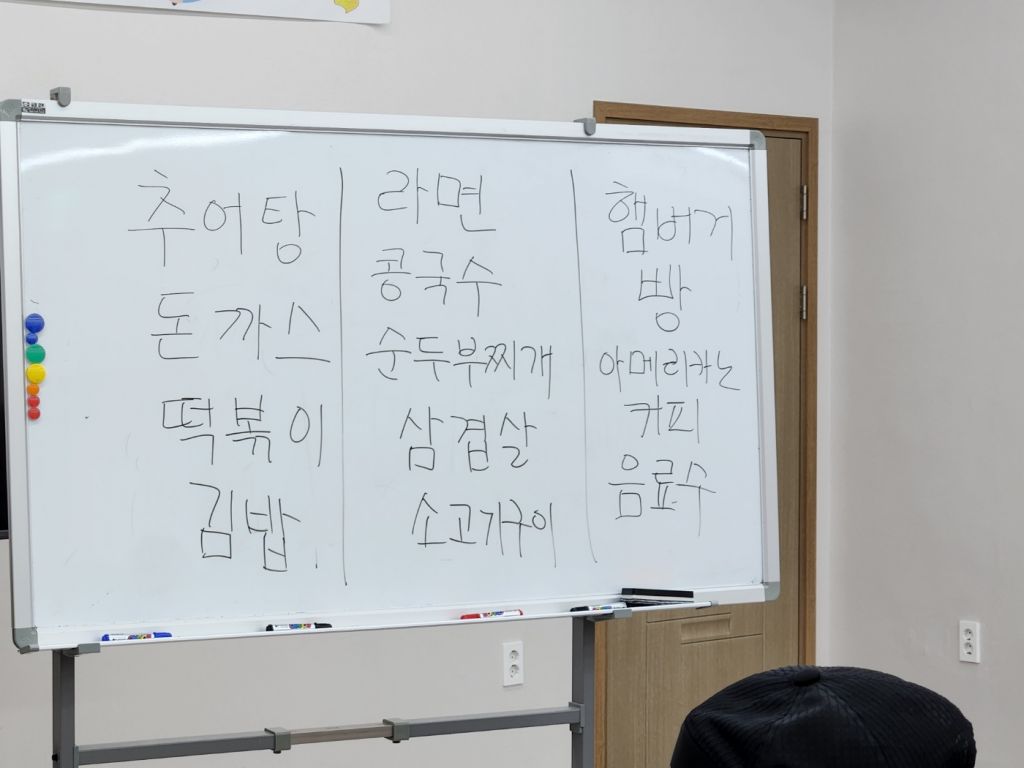 추어탕
돈까스
떡볶이
김밥
라면
콩국수
순두부찌개
삼겹살
소고기구이
햄버거
빵
아메리카노
커피
음료수